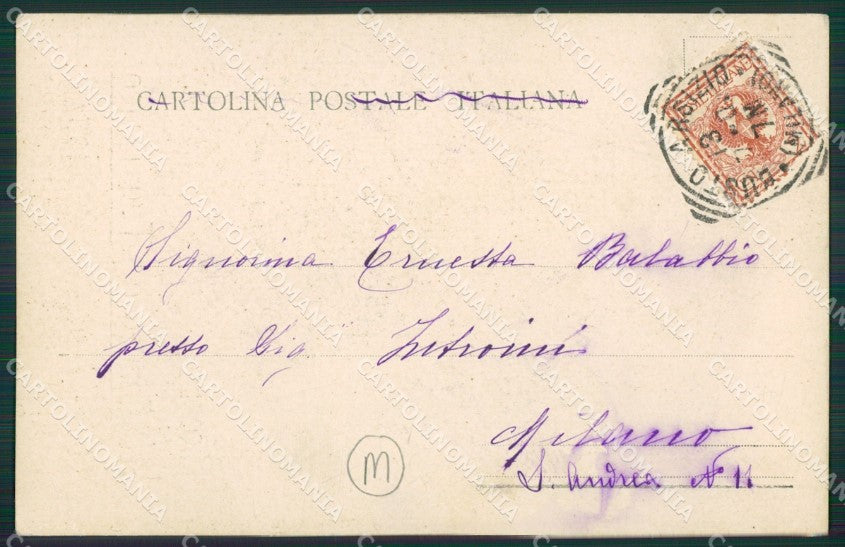 CARTOLINA POSTALE ITALIANA
BUSTO ARSIZIO
Signorina Ernesta Balabbio
presso Sig.ª Introini
Milano
S. Andrea N° 11
M
CARTOLINOMANIA